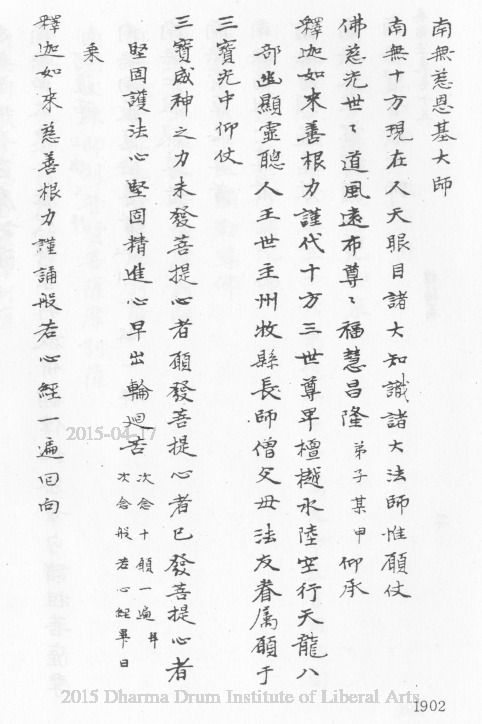 南無慈恩基大師
南無十方現在人天眼目諸大知識諸大法師惟願仗
佛慈光世〻道風遠布尊〻福慧昌隆 弟子某甲 仰承
釋迦如來善根力謹代十方三世尊卑檀樾水陸空行天龍八
部幽顯靈聰人王世主州牧縣長師僧父母法友眷屬願于
三寶光中仰仗
三寶威神之力未發菩提心者願發菩提心者已發菩提心者
堅固護法心堅固精進心早出輪迴苦 次念十願一遍并
次念般若心經畢曰
乘
釋迦如來慈善根力謹誦般若心經一遍回向
2015-04-17
2015 Dharma Drum Institute of Liberal Arts
1902